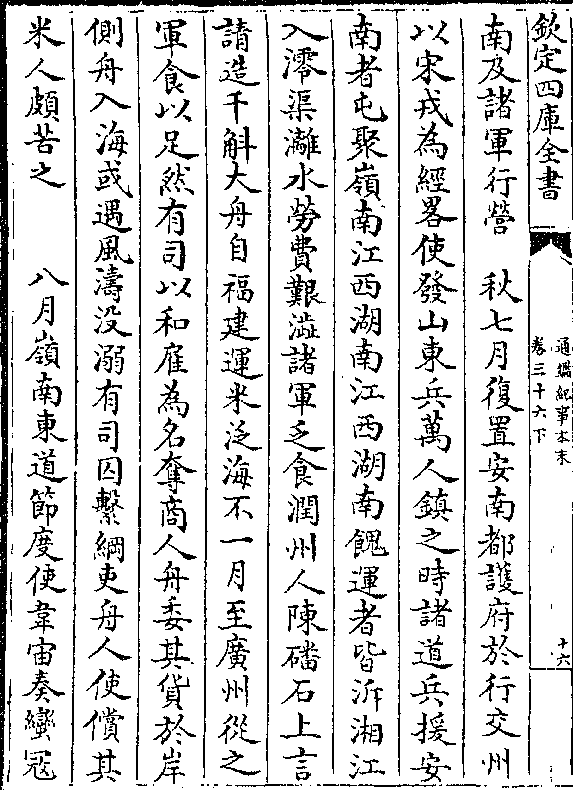 欽定四庫全書
通鑑紀事本末
卷三十六下
十六
南及諸軍行營　秋七月復置安南都護府於行交州
以宋戎為經畧使發山東兵萬人鎮之時諸道兵援安
南者屯聚嶺南江西湖南江西湖南餽運者皆泝湘江
入澪渠灕水勞費艱澁諸軍乏食潤州人陳磻石上言
請造千斛大舟自福建運米泛海不一月至廣州從之
軍食以足然有司以和雇為名奪商人舟委其貨於岸
側舟入海或遇風濤没溺有司囚繫綱吏舟人使償其
米人頗苦之　　八月嶺南東道節度使韋宙奏蠻冦